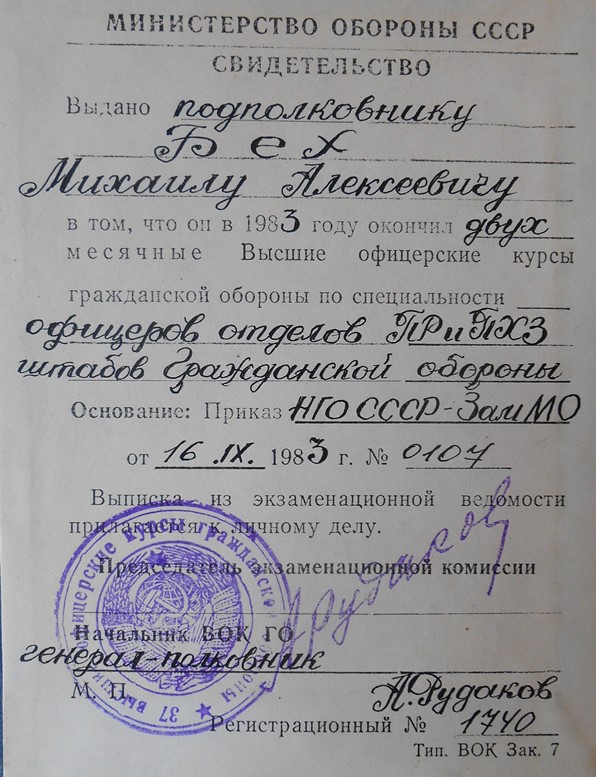 МИНИСТЕРСТВО ОБОРОНЫ СССР
СВИДЕТЕЛЬСТВО
Выдано подполковнику
Бех
Михаилу Алексеевичу
в том, что он в 1983 году окончил двух
месячные Высшие офицерские курсы
гражданской обороны по специальности
офицеров отделов ПР и ПХЗ
штабов Гражданской обороны
Основание: Приказ НГО СССР-Зам МО
от 16.IX. 1983 г. № 0107
Выписка из экзаменационной ведомости
прилагается к личному делу.
Председатель экзаменационной комиссии
Рудаков
Начальник ВОК ГО
генерал-полковник
М. П. А. Рудаков
Регистрационный № 1740
Тип. ВОК Зак. 7
офицерские курсы гражданской
37